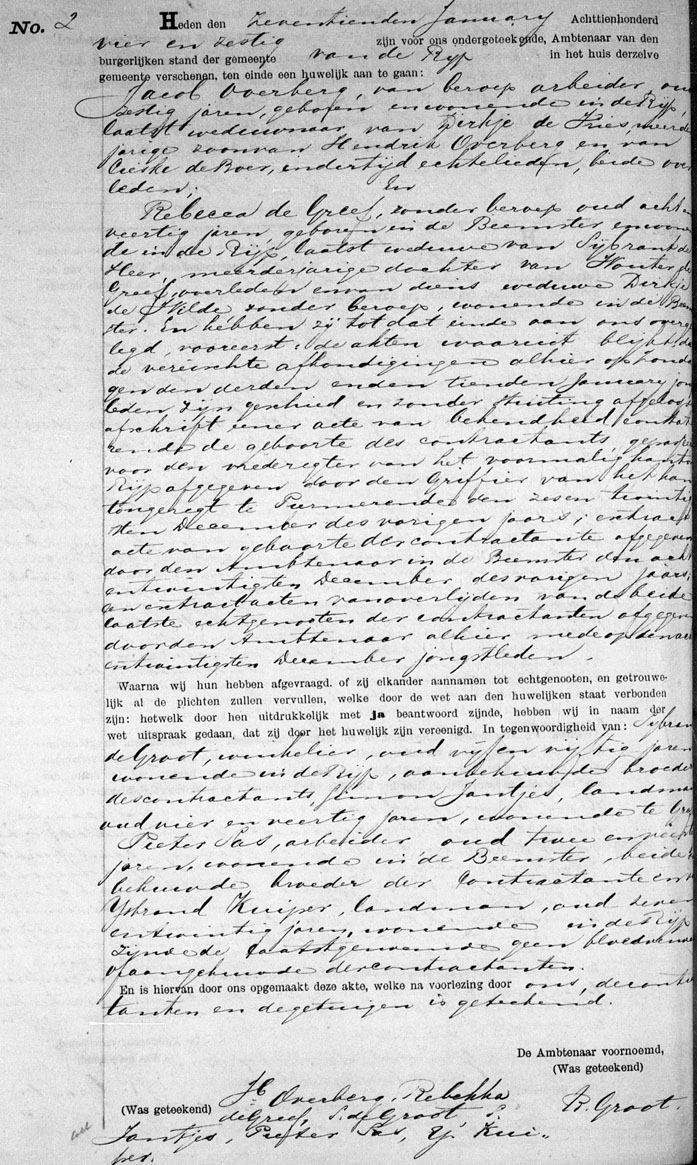 No. 2 Heden den zeventienden January Achttienhonderd
vier en zestig zijn voor ons ondergeteekende, Ambtenaar van den
burgerlijken stand der gemeente van de Ryp in het huis derzelve
gemeente verschenen, ten einde een huwelijk aan te gaan:
Jacob Overberg, van beroep arbeider, oud
zestig jaren, geboren en wonende in de Ryp,
laatst weduwnaar van Dirkje de Vries meerder
jarige zoon van Hendrik Overberg en van
de Boer, indertijd echtelieden, beide over
leden; En
Rebecca de Greef, zonder beroep oud acht en
veertig jaren, geboren in de Beemster, en wonen
de in de Ryp, laatst weduwe van Sybrant de
Heer, meerderjarige dochter van Wouter de
Greef, overleden en van diens weduwe Dirkje
de Wilde zonder beroep, wonende in de Beem
ster. En hebben zij tot dat einde aan ons overge
legd, vooreerst: de akten waaruit blijkt dat
de vereischte afkondigingen alhier op Zonda
gen den derden en den tienden January jong
leden zijn geschied en zonder stuiting afgeloopen
afschrift eener acte van bekendheid consta
rende de geboorte des contractants gepasseerd
voor den vrederegter van het voormalig kanton
Rijp afgegeven door den Griffier van het kan
tongeregt te Purmerende den zesen twintig
sten December des vorigen jaars; extract
acte van geboorte der contractante afgegeven
door den Ambtenaar in de Beemster den acht
entwintigsten December, des vorigen jaars,
en extract acten van overlijden van de beide
laatste echtgenooten der contractanten afgegeven
door den Ambtenaar alhier mede op den acht
entwintigsten December jongstleden.
Waarna wij hun hebben afgevraagd. of zij elkander aannamen tot echtgenooten, en getrouwe-
lijk al de plichten zullen vervullen, welke door de wet aan den huwelijken staat verbonden
zijn: hetwelk door hen uitdrukkelijk met ja beantwoord zijnde, hebben wij in naam der
wet uitspraak gedaan, dat zij door het huwelijk zijn vereenigd. In tegenwoordigheid van: Sybrand
de Groot, winkelier, oud vijf en vijftig jaren
wonende in de Rijp, aanbehuwde broeder
des contractants, Simon Jantjes, landman
oud vier en veertig jaren, wonende te
Pieter Pas, arbeider oud twee en veertig
jaren, wonende in de Beemster, beide
behuwde broeder der Contractante en van
Ysbrand Kuiper, landman, oud zeven
entwintig jaren, wonende in de Rijp
zijnde de laatstgenoemde geen bloedverwant
of aangehuwde der contractanten.
En is hiervan door ons opgemaakt deze akte, welke na voorlezing door ons, de contrac
tanten en de getuigen is geteekend.
De Ambtenaar voornoemd,
(Was geteekend)
B. Groot.
(Was geteekend) H. Overberg, Rebekka
de Greef, S. de Groot, S.
Jantjes, Pieter Pas, Y. Kui-
per.